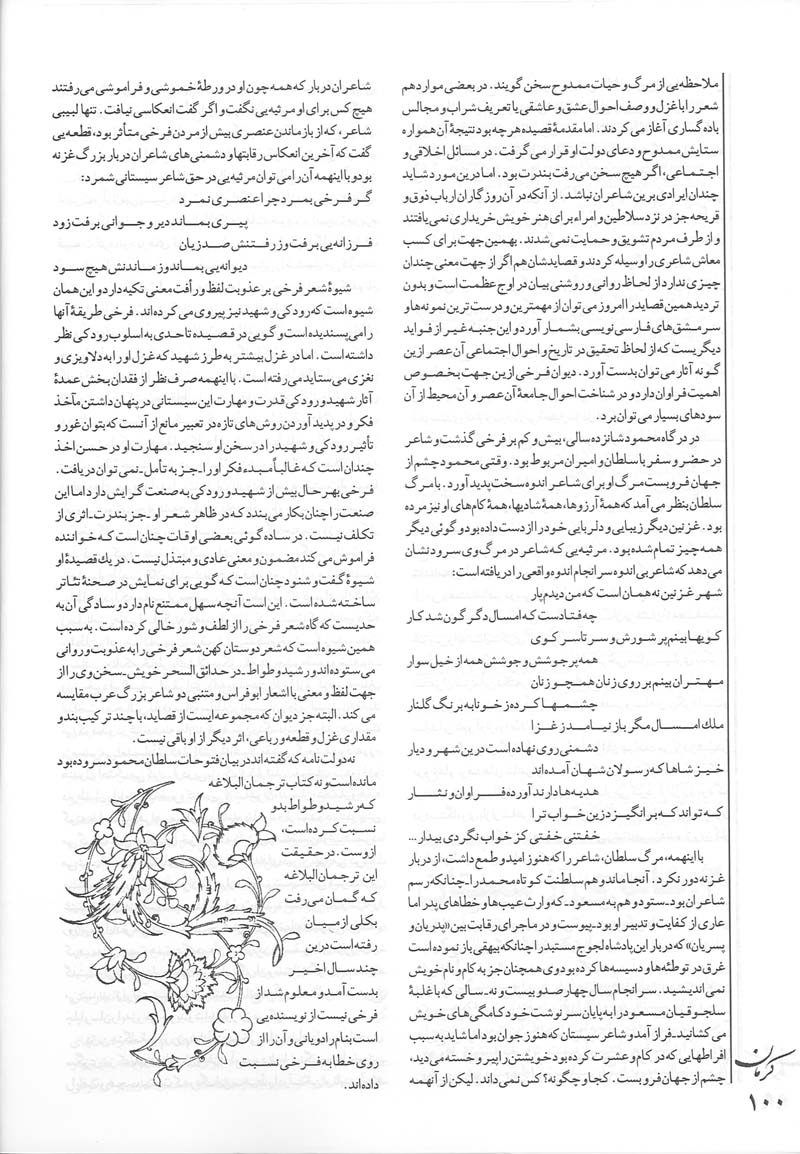 ملاحظه‌یی از مرگ و حیات ممدوح سخن گویند. در بعضی موارد هم
شعر را با غزل و وصف احوال عشق و عاشقی یا تعریف شراب و مجالس
باده گساری آغاز می کردند. اما مقدمهٔ قصیده هرچه بود نتیجهٔ آن همواره
ستایش ممدوح و دعای دولت او قرار می گرفت. در مسائل اخلاقی و
اجتماعی، اگر هیچ سخن می رفت بندرت بود. اما در این مورد شاید
چندان ایرادی برین شاعران نباشد. از آنکه در آن روزگاران ارباب ذوق و
قریحه جز در نزد سلاطین و امراء برای هنر خویش خریداری نمی یافتند
و از طرف مردم تشویق و حمایت نمی شدند. بهمین جهت برای کسب
معاش شاعری را وسیله کردند و قصایدشان هم اگر از جهت معنی چندان
چیزی ندارد از لحاظ روانی و روشنی بیان در اوج عظمت است و بدون
تردید همین قصاید را امروز می توان از مهمترین و درست ترین نمونه ها و
سرمشق های فارسی نویسی بشمار آورد و این جنبه غیر از فواید
دیگریست که از لحاظ تحقیق در تاریخ و احوال اجتماعی آن عصر ازین
گونه آثار می توان بدست آورد. دیوان فرخی ازین جهت بخصوص
اهمیت فراوان دارد و در شناخت احوال جامعهٔ آن عصر و آن محیط از آن
سودهای بسیار می توان برد.
در درگاه محمود شانزده سالی، بیش و کم بر فرخی گذشت و شاعر
در حضر و سفر با سلطان و امیران مربوط بود. وقتی محمود چشم از
جهان فروبست مرگ او برای شاعر اندوه سخت پدید آورد. با مرگ
سلطان بنظر می آمد که همهٔ آرزوها، همهٔ شادیها، همهٔ کام های او نیز مرده
بود. غزنین دیگر زیبایی و دلربایی خود را از دست داده بود و گوئی دیگر
همه چیز تمام شده بود. مرثیه یی که شاعر در مرگ وی سرود نشان
می دهد که شاعر بی اندوه سرانجام اندوه واقعی را دریافته است:
شهر غزنین نه همان است که من دیدم پار
چه فتادست که امسال دگرگون شد کار
کویها بینم پر شورش و سرتاسر کوی
همه پر جوشش و جوشش همه از خیل سوار
مهتران بینم بر روی زنان همچو زنان
چشمها کرده ز خونابه برنگ گلنار
ملك امسال مگر باز نیامد ز غزا
دشمنی روی نهاده است درین شهر و دیار
خیز شاها که رسولان شهان آمده اند
هدیه ها دارند آورده فراوان و نثار
که تواند که برانگیزد زین خواب ترا
خفتنی خفتی کز خواب نگردی بیدار...
با اینهمه، مرگ سلطان، شاعر را که هنوز امید و طمع داشت، از دربار
غزنه دور نکرد. آنجا ماند و هم سلطنت کوتاه محمد را ـ چنانکه رسم
شاعران بود ـ ستود و هم به مسعود ـ که وارث عیب ها و خطاهای پدر اما
عاری از کفایت و تدبیر او بود ـ پیوست و در ماجرای رقابت بین «پدریان و
پسریان» که دربار این پادشاه لجوج مستبد را چنانکه بیهقی باز نموده است
غرق در توطئه ها و دسیسه ها کرده بود وی همچنان جز به کام و نام خویش
نمی اندیشید. سرانجام سال چهارصد و بیست و نه ـ سالی که با غلبهٔ
سلجوقیان مسعود را به پایان سرنوشت خود کامگی های خویش
می کشانید ـ فراز آمد و شاعر سیستان که هنوز جوان بود اما شاید به سبب
افراطهایی که در کام و عشرت کرده بود خویشتن را پیر و خسته می دید،
چشم از جهان فروبست. کجا و چگونه؟ کس نمی داند. لیکن از آنهمه
شاعران دربار که همه چون او در ورطهٔ خموشی و فراموشی می رفتند
هیچ کس برای او مرثیه یی نگفت و اگر گفت انعکاسی نیافت. تنها لبیبی
شاعر، که از باز ماندن عنصری بیش از مردن فرخی متأثر بود، قطعه یی
گفت که آخرین انعکاس رقابتها و دشمنی های شاعران دربار بزرگ غزنه
بود و با اینهمه آن را می توان مرثیه یی در حق شاعر سیستانی شمرد:
گر فرخی بمرد چرا عنصری نمرد
پیری بماند دیر و جوانی برفت زود
فرزانه یی برفت وز رفتنش صد زیان
دیوانه یی بماند وز ماندنش هیچ سود
شیوهٔ شعر فرخی بر عذوبت لفظ و رأفت معنی تکیه دارد و این همان
شیوه است که رودکی و شهید نیز پیروی می کرده اند. فرخی طریقهٔ آنها
را می پسندیده است و گویی در قصیده تا حدی به اسلوب رودکی نظر
داشته است. اما در غزل بیشتر به طرز شهید که غزل او را به دلاویزی و
نغزی می ستاید می رفته است. با اینهمه صرف نظر از فقدان بخش عمدهٔ
آثار شهید و رودکی قدرت و مهارت این سیستانی در پنهان داشتن مآخذ
فکر و در پدید آوردن روش های تازه در تعبیر مانع از آنست که بتوان غور و
تأثیر رودکی و شهید را در سخن او سنجید. مهارت او در حسن اخذ
چندان است که غالباً مبدء فکر او را ـ جز به تأمل ـ نمی توان دریافت.
فرخی بهر حال بیش از شهید و رودکی به صنعت گرایش دارد اما این
صنعت را چنان بکار می بندد که در ظاهر شعر او ـ جز بندرت ـ اثری از
تکلف نیست. در ساده گوئی بعضی اوقات چنان است که خواننده
فراموش می کند مضمون و معنی عادی و مبتذل نیست. در یك قصیدهٔ او
شیوهٔ گفت و شنود چنان است که گویی برای نمایش در صحنهٔ تئاتر
ساخته شده است. این است آنچه سهل ممتنع نام دارد و سادگی آن به
حدیست که گاه شعر فرخی را از لطف و شور خالی کرده است. به سبب
همین شیوه است که شعر دوستان کهن شعر فرخی را به عذوبت و روانی
می ستوده اند و رشید وطواط ـ در حدائق السحر خویش ـ سخن وی را از
جهت لفظ و معنی با اشعار ابوفراس و متنبی دو شاعر بزرگ عرب مقایسه
می کند. البته جز دیوان که مجموعه ایست از قصاید، با چند ترکیب بند و
مقداری غزل و قطعه و رباعی، اثر دیگر از او باقی نیست.
نه دولت نامه که گفته اند در بیان فتوحات سلطان محمود سروده بود
مانده است و نه کتاب ترجمان البلاغه
که رشید وطواط بدو
نسبت کرده است،
ازوست. در حقیقت
این ترجمان البلاغه
که گمان می رفت
بکلی از میان
رفته است درین
چند سال اخیر
بدست آمد و معلوم شد از
فرخی نیست از نویسنده یی
است بنام رادویانی و آن را از
روی خطا به فرخی نسبت
داده اند.
کرمان
۱۰۰